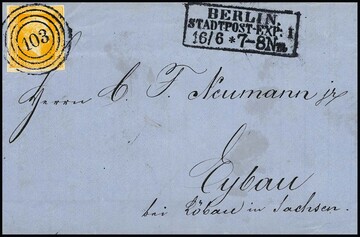 103
BERLIN.
STADTPOST-EXP. I
16/6 * 7-8 Nm
Herrn C. F. Neumann jr
Eybau
bei Löbau in Sachsen.